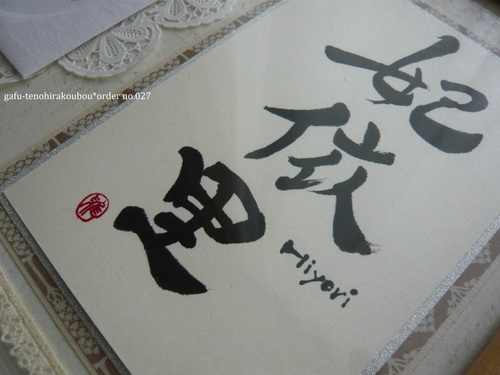 gafu-tenohirakoubou*order no.027
妃依
Hiyori